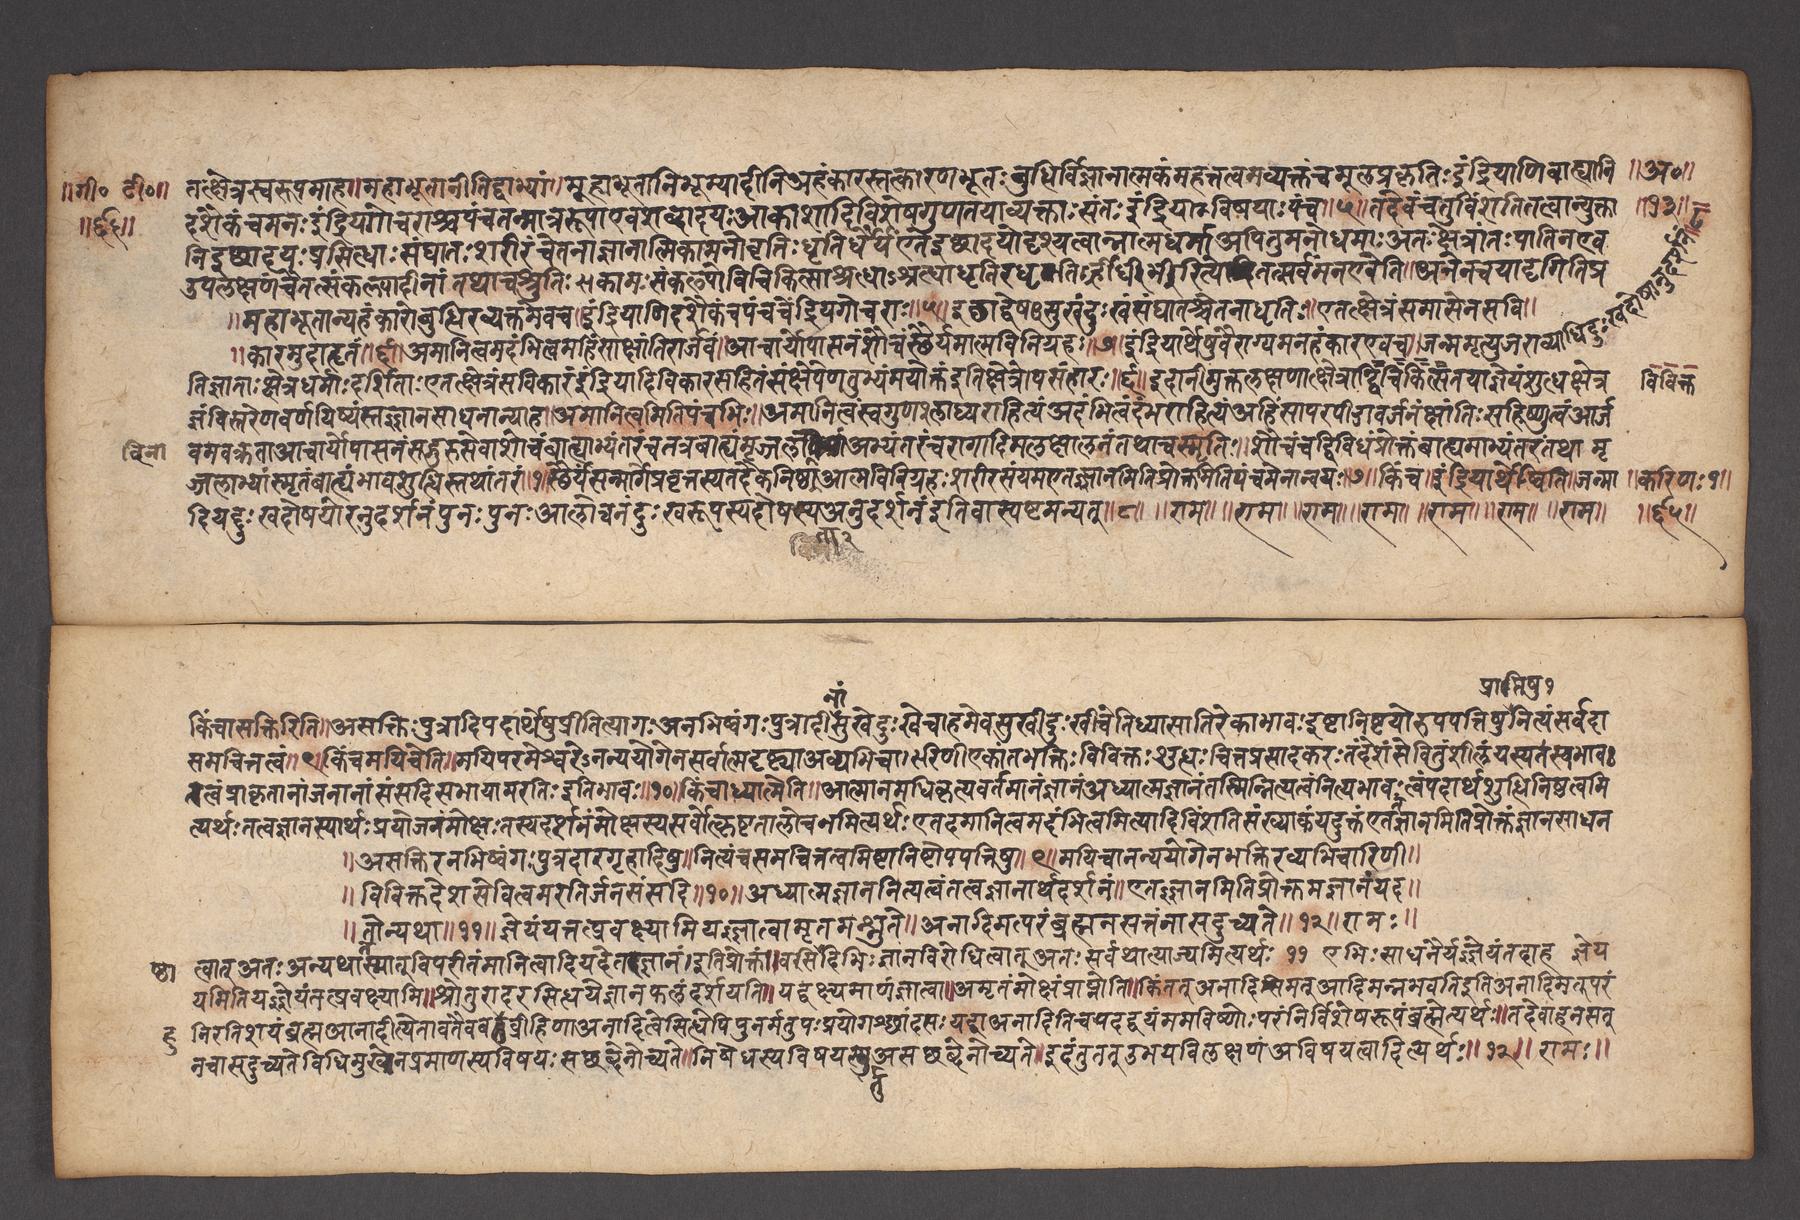 ॥गी० टी०॥
॥६५॥
तत्क्षेत्रस्वरूपमाह॥महाभूतानीतिद्वाभ्यां॥महाभूतानिभूम्यादीनिअहंकारस्तत्कारणभूतःबुधिर्विज्ञानात्मकंमहत्तत्वमव्यक्तंचमूलप्रकृतिःइंद्रियाणिबाह्यानि
दशैकंचमनःइंद्रियगोचराश्चपंचतन्मात्ररूपाएवशब्दादयःआकाशादिविशेषगुणतयाव्यक्ताःसंतःइंद्रियविषयाःपंच॥५॥तदेवंचतुर्विंशतितत्वान्युक्ता
निइछादयःप्रसिध्धाःसंघातःशरीरंचेतनाज्ञानात्मिकामनोवृतिःधृतिर्धैर्यंएतेइछादयोदृश्यत्वान्नात्मधर्माअपितुमनोधर्माःअतःक्षेत्रांतःपातिनएव
उपलक्षणंचैतत्संकल्पादीनांतथाचश्रुतिःकामःसंकल्पोविचिकित्साश्रध्धाऽश्रध्धाधृतिरधृतिर्ह्रीर्धीर्भीरित्येतत्सर्वंमनएवेति॥अनेनचयादृगितिप्र
॥महाभूतान्यहंकारोबुधिरव्यक्तमेवच॥इंद्रियाणिदशैकंचपंचचेंद्रियगोचराः॥५॥इछाद्वेषःसुखंदुःखंसंघातश्चेतनाधृतिः॥एतत्क्षेत्रंसमासेनसवि॥
॥कारमुदाहृतं॥६॥अमानित्वमदंभित्वमहिंसाक्षांतिरार्जवं॥आचार्योपासनंशौचंस्थैर्यमात्मविनिग्रहः॥७॥इंद्रियार्थेषुवैराग्यमनहंकारएवच॥जन्ममृत्युजराव्याधिदुःखदोषानुदर्शनं॥८॥
तिज्ञाताःक्षेत्रधर्माःदर्शिताःएतत्क्षेत्रंसविकारंइंद्रियादिविकारसहितंसंक्षेपेणतुभ्यंमयोक्तंइतिक्षेत्रोपसंहारः॥६॥इदानीमुक्तलक्षणात्क्षेत्राततयाज्ञेयंशुध्धक्षेत्र
विविक्त
ज्ञंविस्तरेणवर्णयिष्यंस्तज्ज्ञानसाधनान्याह॥अमानित्वमितिपंचभिः॥अमानित्वंस्वगुणश्लाध्यराहित्यंअदंभित्वंदंभराहित्यंअहिंसापरपीडावर्जनंक्षांतिःसहिष्णुत्वंआर्ज
वमवक्रताआचार्योपासनंसद्गुरुसेवाशौचंबाह्याभ्यंतरंचतत्रबाह्यंमृज्जलअभ्यंतरंचरागादिमलक्षालनंतथाचस्मृतिः॥शौचंचद्विविधंप्रोक्तंबाह्यमाभ्यंतरंतथा मृ
ज्जलाभ्यांस्मृतंबाह्यंभावशुधिस्तथांतरं॥स्थैर्यंसन्मार्गेप्रवृत्तस्यतदेकनिष्ठाआत्मविनिग्रहःशरीरसंयमःएतज्ज्ञानमितिप्रोक्तमितिपंचमेनान्वयः॥७॥किंच॥इंद्रियार्थेष्विति॥जन्मा
दिषुदुःखदोषयोरनुदर्शनंपुनःपुनःआलोचनंदुःखरूपस्यदोषस्यअनुदर्शनंइतिवास्पष्टमन्यत्॥८॥ ॥राम॥ ॥राम॥ ॥राम॥ ॥राम॥ ॥राम॥ ॥राम॥ ॥राम॥
॥अ०॥
॥१३॥
॥करिणः१॥
॥६५॥
किंचासक्तिरिति॥असक्तिःपुत्रादिपदार्थेषुप्रीतित्यागःअनभिष्वंगःपुत्रादीनांसुखेदुःखेचाहमेवसुखीदुःखीचेतिध्यासातिरेकाभावःइष्टानिष्टयोरुपपत्तिषुप्राप्तिषु१नित्यंसर्वदा
समचित्तत्वं॥९॥किंचमयिचेति॥मयिपरमेश्वरेऽनन्ययोगेनसर्वात्मदृष्ट्याअव्यभिचारिणीएकांतभक्तिःविविक्तःशुध्धःचित्तप्रसादकरःतंदेशंसेवितुंशीलंयस्यतस्यभावः
त्वंप्राकृतानांजनानांसंसदिसभायामरतिःइतिभावः॥१०॥किंचाध्यात्मेति॥आत्मानमधिकृत्यवर्तमानंज्ञानंअध्यात्मज्ञानंतस्मिन्नित्यत्वंनित्यभावःत्वंपदार्थशुधिनिष्ठत्वमि
त्यर्थःतत्वज्ञानस्यार्थःप्रयोजनंमोक्षःतस्यदर्शनंमोक्षस्यसर्वोत्कृष्टतालोचनमित्यर्थःएतदमानित्वमदंभित्वमित्यादिविंशतिसंख्याकंयदुक्तंएतज्ज्ञानमितिप्रोक्तंज्ञानसाधन
॥असक्तिरनभिष्वंगःपुत्रदारगृहादिषु॥नित्यंचसमचित्तत्वमिष्टानिष्टोपपत्तिषु॥९॥मयिचानन्ययोगेनभक्तिरव्यभिचारिणी॥
॥विविक्तदेशसेवित्वमरतिर्जनसंसदि॥१०॥अध्यात्मज्ञाननित्यत्वंतत्वज्ञानार्थदर्शनं॥एतज्ज्ञानमितिप्रोक्तमज्ञानंयद॥
॥तोन्यथा॥११॥ज्ञेयंयत्तत्प्रवक्ष्यामियज्ज्ञात्वामृतमश्नुते॥अनादिमत्परंब्रह्मनसत्तंनासदुच्यते॥१२॥रामः॥
त्वात्अतःअन्यथास्मात्विपरीतंमानित्वादियदेतइतिप्रोक्तं॥वसिष्ठादिभिःज्ञानविरोधित्वात्अतःसर्वथात्याज्यमित्यर्थः ११ एभिःसाधनैर्यज्ज्ञेयंतदाह ज्ञेय
यमितियज्ज्ञेयंतत्प्रवक्ष्यामि॥श्रोतुरादरसिध्धयेज्ञानफलंदर्शयति॥यद्वक्ष्यमाणंज्ञात्वा॥अमृतंमोक्षंप्राप्नोति॥किंतत्अनादिमत्आदिमन्नभवतिइतिअनादिमत्परं
निरतिशयंब्रह्मआनादीत्येतावतैवबहुव्रीहिणाअनादित्वेसिध्धेपिपुनर्मतुपःप्रयोगश्छांदसःयद्वाअनादितिचपदद्वयंममविष्णोःपरंनिर्विशेषरूपंब्रह्मेत्यर्थः॥तदेवाहनसत्
नचासदुच्यतेविधिमुखेनप्रमाणस्यविषयःसछब्देनोच्यते॥निषेधस्यविषयस्तुअसछब्देनोच्यते॥इदंतुतत्उभयविलक्षणंअविषयत्वादित्यर्थः॥१२॥ रामः॥